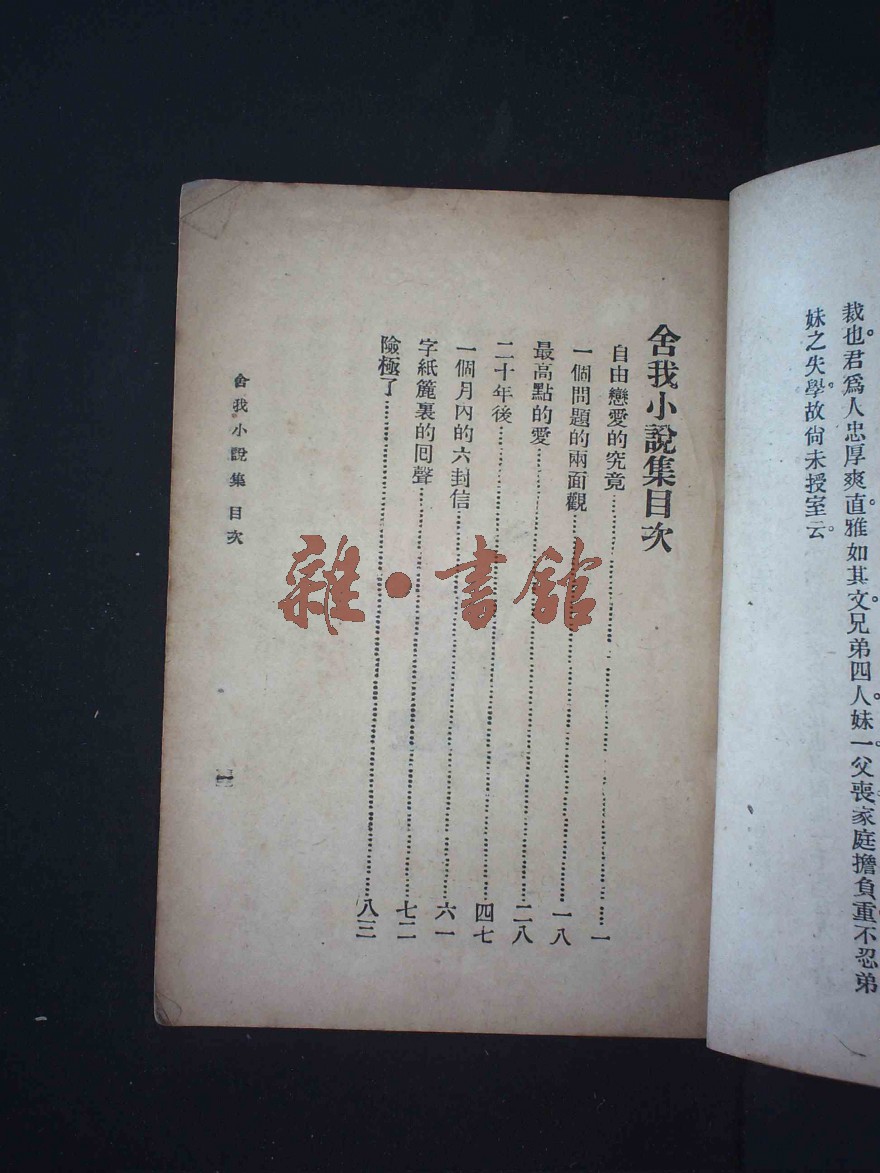 裁也。君爲人忠厚爽直。雅如其文。兄弟四人。妹一。父喪家庭擔負重。不忍弟
妹之失學。故尙未授室云。
舍我小說集目次
自由戀愛的究竟……一
一個問題的兩面觀……一八
最高點的愛……二八
二十年後……四七
一個月內的六封信……六一
字紙簏裏的回聲……七二
險極了……八三
舍我小說集 目次
雜·書館